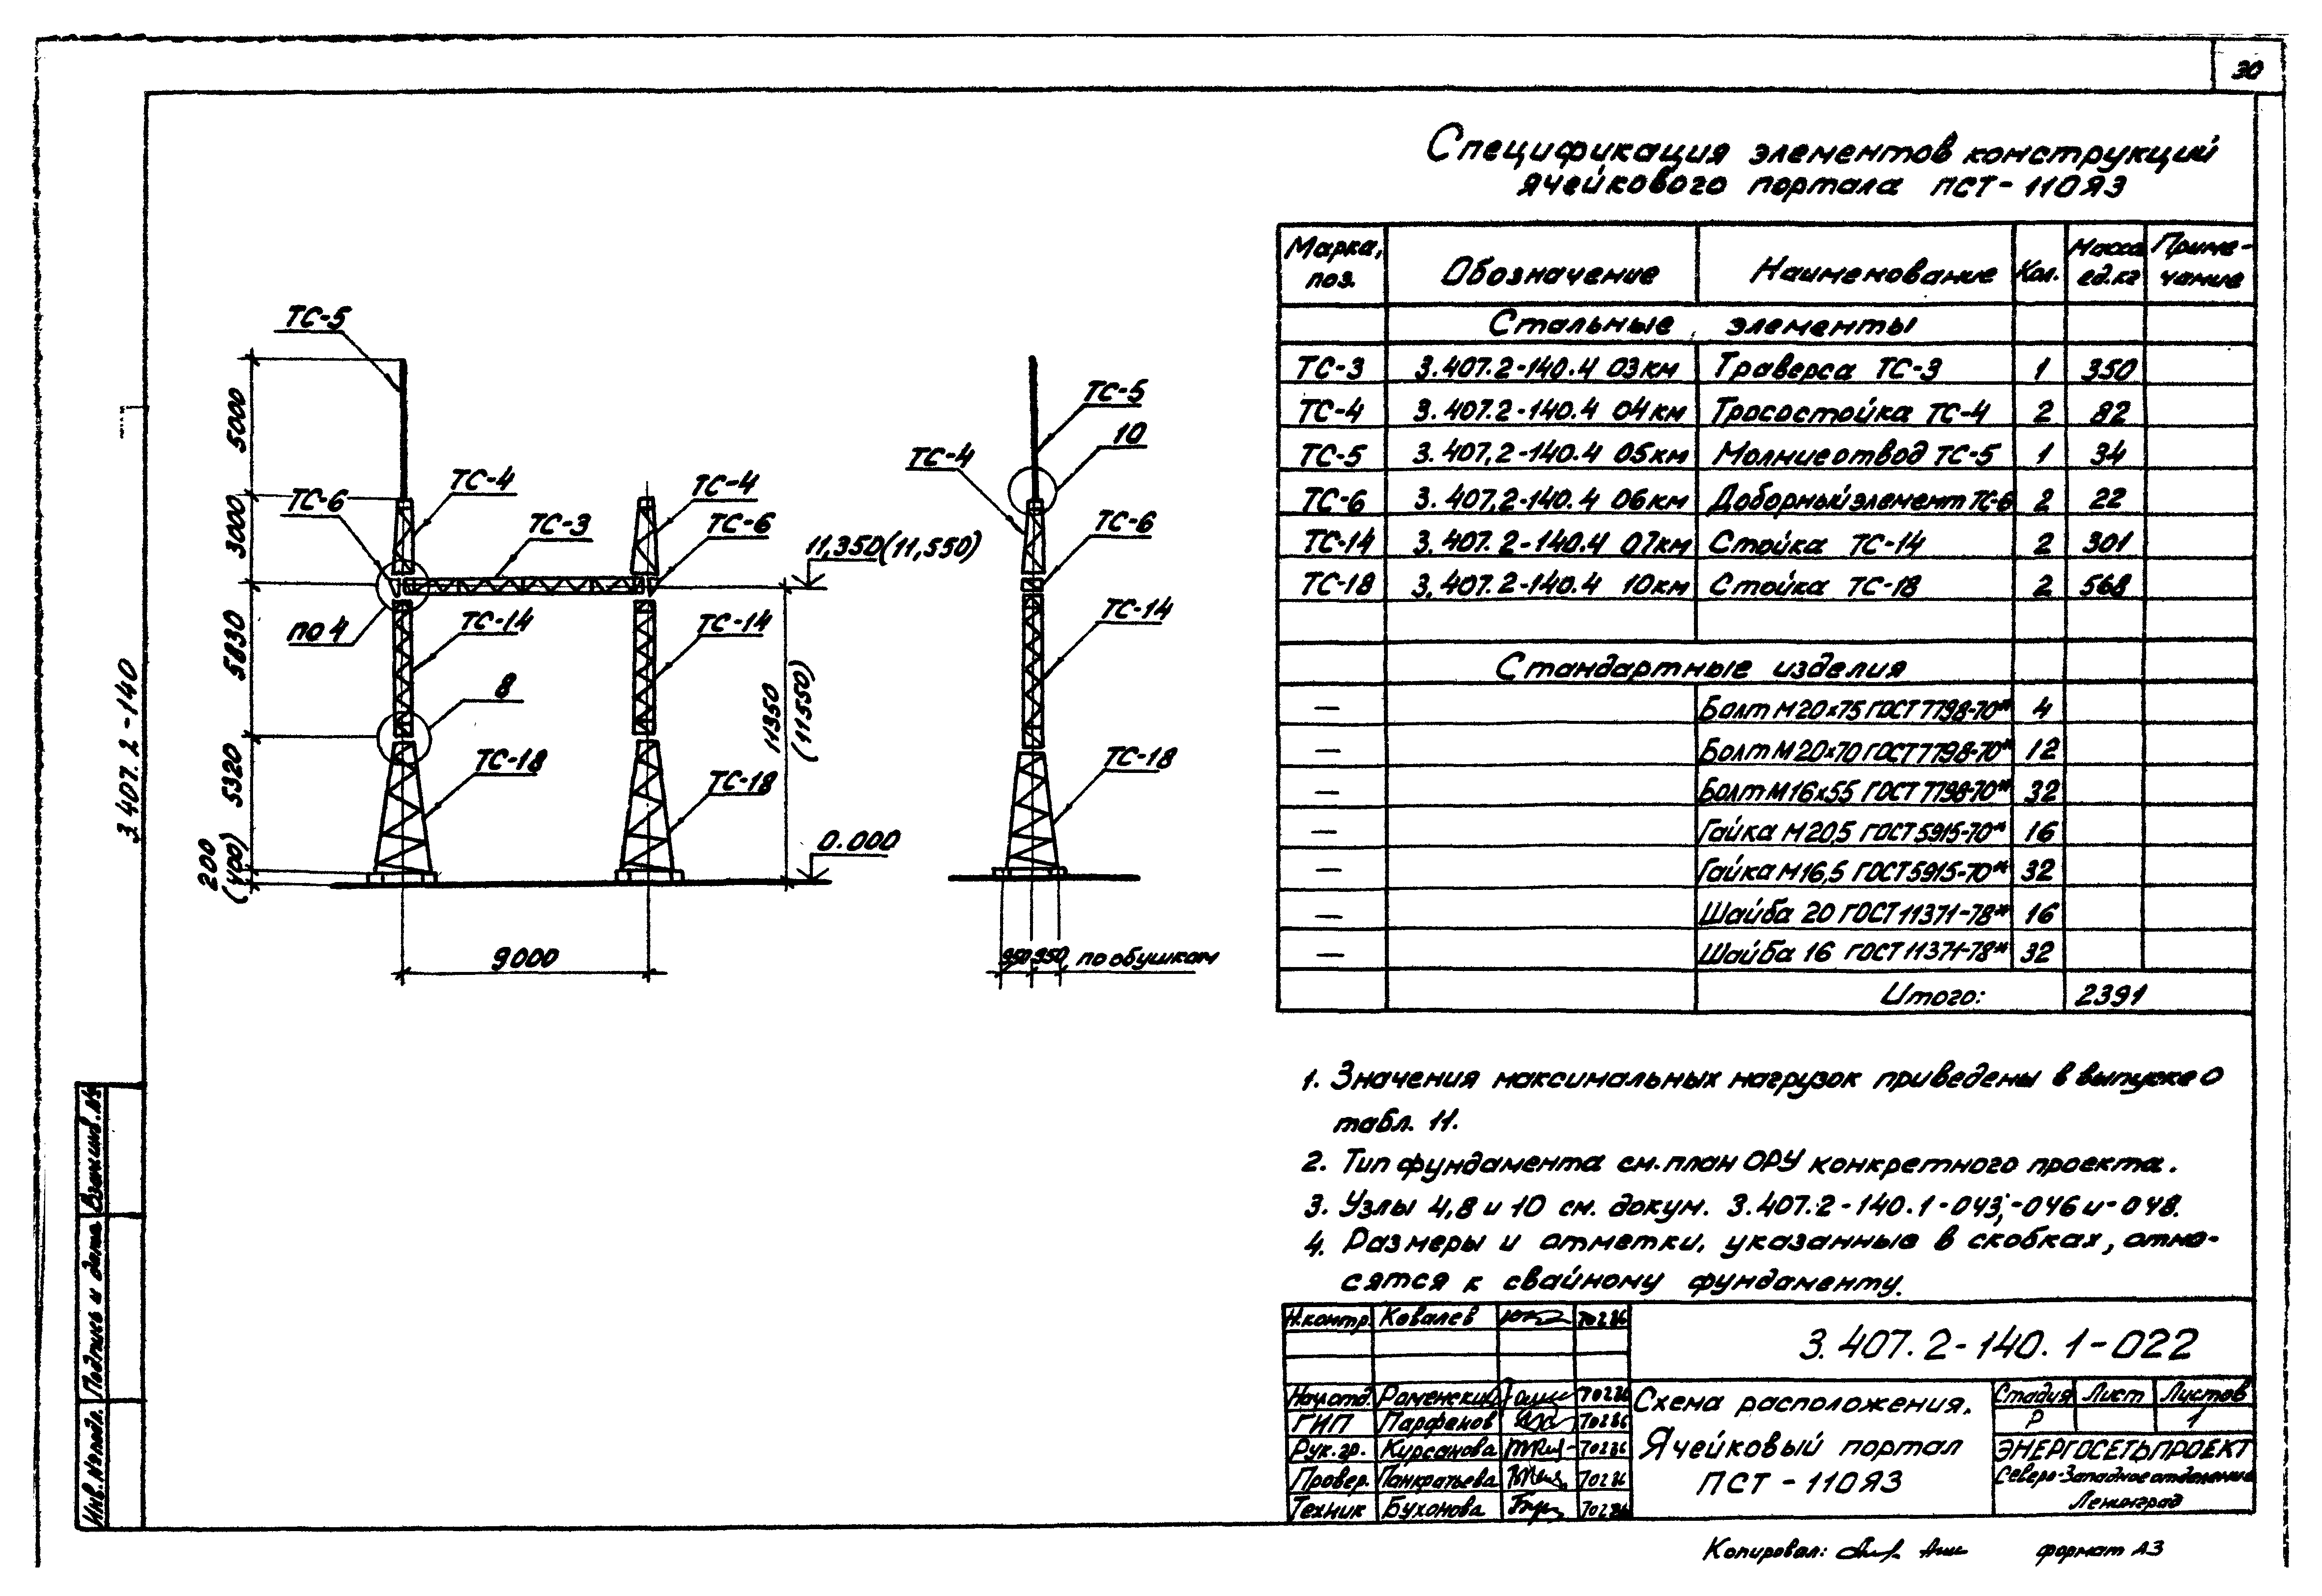 30
Спецификация элементов конструкций
ячейкового портала ПСТ-110Я3
Марка, поз. Обозначение Наименование Кол. Масса ед.кг Приме-чание
Стальные элементы
ТС-3 3.407.2-140.4 03км Траверса ТС-3 1 350
ТС-4 3.407.2-140.4 04км Тросостойка ТС-4 2 82
ТС-5 3.407.2-140.4 05км Молниеотвод ТС-5 1 34
ТС-6 3.407.2-140.4 06км Доборный элемент ТС-6 2 22
ТС-14 3.407.2-140.4 07км Стойка ТС-14 2 301
ТС-18 3.407.2-140.4 10км Стойка ТС-18 2 568
Стандартные изделия
— Болт М20х75 ГОСТ 7798-70* 4
— Болт М20х70 ГОСТ 7798-70* 12
— Болт М16х55 ГОСТ 7798-70* 32
— Гайка М20,5 ГОСТ 5915-70* 16
— Гайка М16,5 ГОСТ 5915-70* 32
— Шайба 20 ГОСТ 11371-78* 16
— Шайба 16 ГОСТ 11371-78* 32
Итого: 2391
ТС-5
ТС-4
ТС-6
ТС-3
ТС-4
ТС-6
11,350(11,550)
по 4
ТС-14
ТС-14
8
ТС-18
ТС-18
0.000
5000
3000
5830
5320
200
(400)
11350
(11550)
9000
ТС-5
10
ТС-4
ТС-6
ТС-14
ТС-18
950 950 по обушкам
3.407.2-140
1. Значения максимальных нагрузок приведены в выпуске 0
табл. 11.
2. Тип фундамента см. план ОРУ конкретного проекта.
3. Узлы 4,8 и 10 см. докум. 3.407.2-140.1-043;-046 и -048.
4. Размеры и отметки, указанные в скобках, отно-
сятся к свайному фундаменту.
Н.контр. Ковалев 70286
3.407.2-140.1-022
Нач.отд. Роменский 70286
ГИП Парфенов 70286
Рук.гр. Курсанова 70286
Провер. Панкратьева 70286
Техник Бухонова 70286
Схема расположения.
Ячейковый портал
ПСТ-110Я3
Стадия Лист Листов
Р 1
ЭНЕРГОСЕТЬПРОЕКТ
Северо-Западное отделение
Ленинград
Взам.инв.№
Подпись и дата
Инв.№подл.
Копировал: формат А3